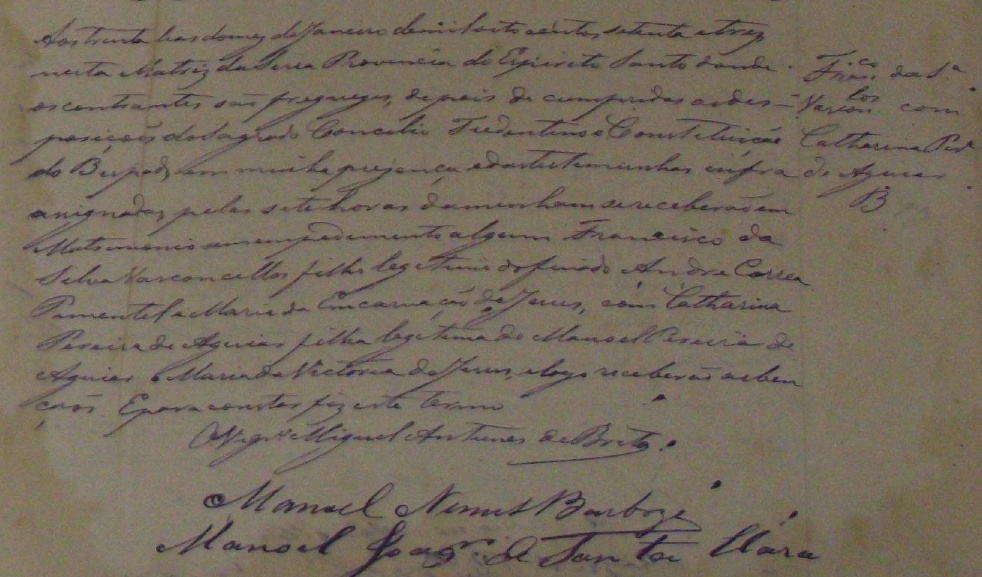 Aos trinta hum do mez de Janeiro de mil oito centos setenta e trez
nesta Matriz da Serra Provincia do Espirito Santo donde
os contrantes são freguezes, depois de cumpridas as des-
posições do Sagrado Concilio Tredentino e Constituição
do Bispado, em minha prezença e das testemunhas infra
asignadas, pelas sete horas da menham se receberão em
Matrimonio sem empedimento algum Francisco da
Silva Vasconcellos filho legitimo do finado Andre Correa
Pimentel e Maria da Encarnação de Jesus, com Catharina
Pereira de Aguiar filha legitima de Manoel Pereira de
Aguiar e Maria da Victoria de Jesus, e logo receberão as ben
çaõs. E para constar fiz este termo
O Vigr.º Miguel Antunes de Brito.
Manoel Nunes Barboza
Manoel Joaq.m de Santa Clara
Fran.co da S.a
Vascon.los com
Catharina Per.a
de Aguiar
B